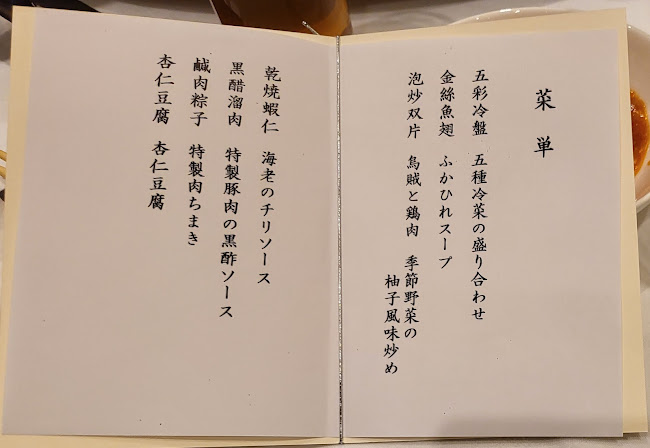 菜単
五彩冷盤 五種冷菜の盛り合わせ
金絲魚翅 ふかひれスープ
泡炒双片 烏賊と鶏肉 季節野菜の
柚子風味炒め
乾焼蝦仁 海老のチリソース
黒醋溜肉 特製豚肉の黒酢ソース
鹹肉粽子 特製肉ちまき
杏仁豆腐 杏仁豆腐